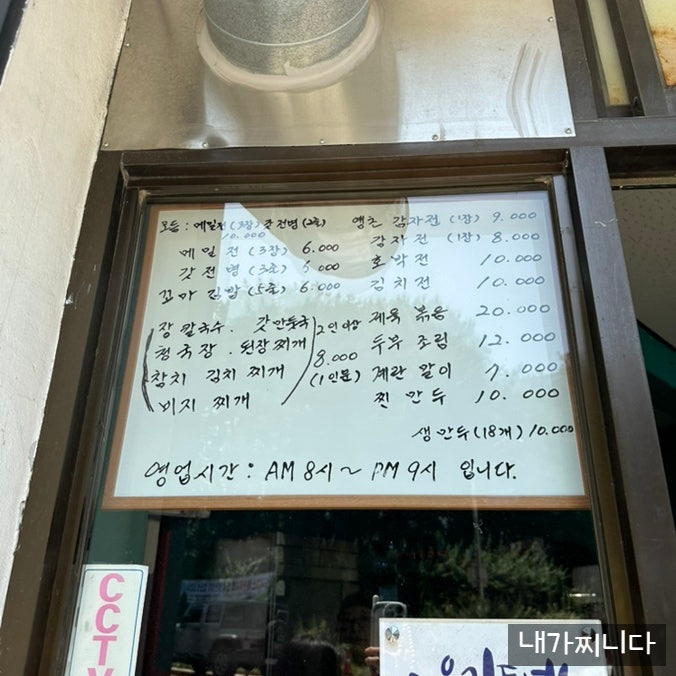 모듬 : 메밀전 (3장) 갓전병 (2줄)
10.000
메밀전 (3장) 6.000
갓전병 (3줄) 6.000
꼬마김밥 (5줄) 6.000
장칼국수. 갓만둣국
청국장. 된장찌개
참치 김치찌개
비지찌개
2인이상
8.000
(1인분)
감자전 (1장) 9.000
감자전 (1장) 8.000
호박전 10.000
김치전 10.000
제육 볶음 20.000
두부 조림 12.000
계란 말이 7.000
찐만두 10.000
생만두 (18개) 10.000
영업시간 : AM 8시 ~ PM 9시 입니다.
CCTV
내가찌니다